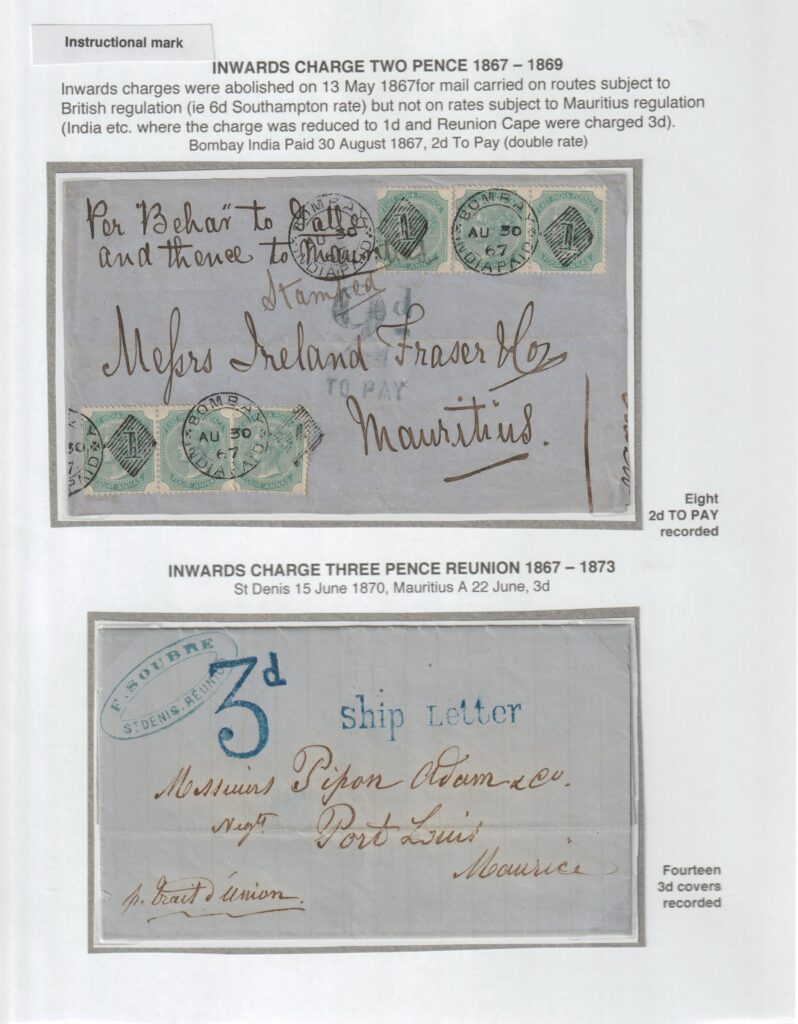 Instructional mark
INWARDS CHARGE TWO PENCE 1867 – 1869
Inwards charges were abolished on 13 May 1867for mail carried on routes subject to
British regulation (ie 6d Southampton rate) but not on rates subject to Mauritius regulation
(India etc. where the charge was reduced to 1d and Reunion Cape were charged 3d).
Bombay India Paid 30 August 1867, 2d To Pay (double rate)
Per "Behar" to Galle
and thence to
Stamped
BOMBAY
AU 30
INDIA PAID
1
BOMBAY
AU 30
67
INDIA PAID
1
2d
TO PAY
Messrs Ireland Fraser & Co
Mauritius.
1
BOMBAY
AU 30
67
INDIA PAID
FOUR ANNAS
FOUR ANNAS
FOUR ANNAS
Eight
2d TO PAY
recorded
INWARDS CHARGE THREE PENCE REUNION 1867 – 1873
St Denis 15 June 1870, Mauritius A 22 June, 3d
F. SOUBRE
ST DENIS. RÉUNION
3d
Ship Letter
Messieurs Pipon Adam & Co.
Negts
Port Louis
Maurice
p. Trait d'union.
Fourteen
3d covers
recorded